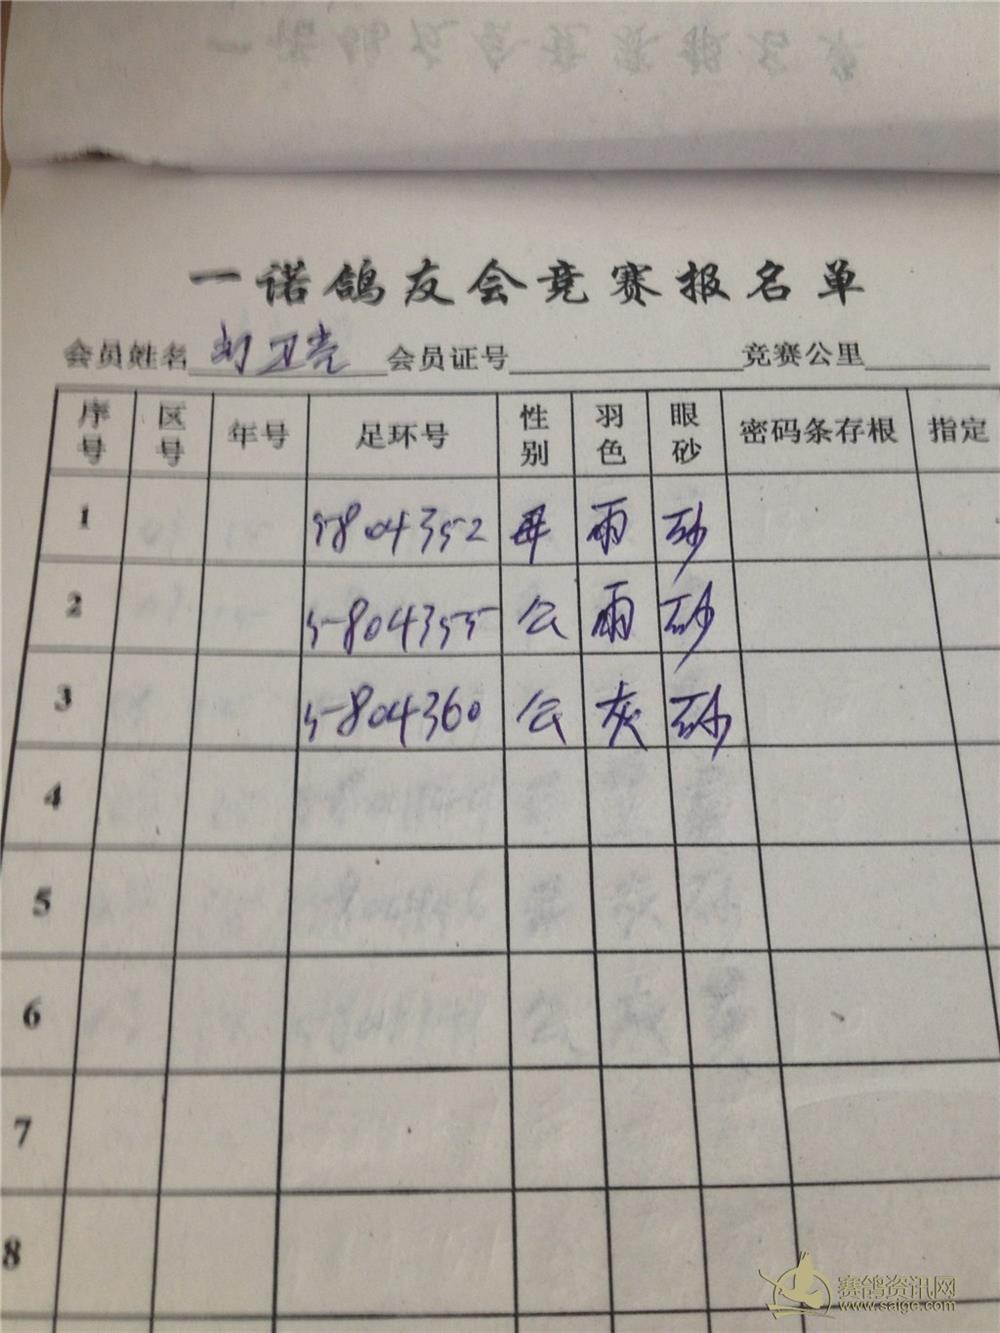 一诺鸽友会竞赛报名单
会员姓名 刘卫亮 会员证号 竞赛公里
序号 区号 年号 足环号 性别 羽色 眼砂 密码条存根 指定
1 5804352 母 雨 砂
2 5-804355 公 雨 砂
3 5-804360 公 灰 砂
4
5
6
7
8
赛鸽资讯网
www.saige.com